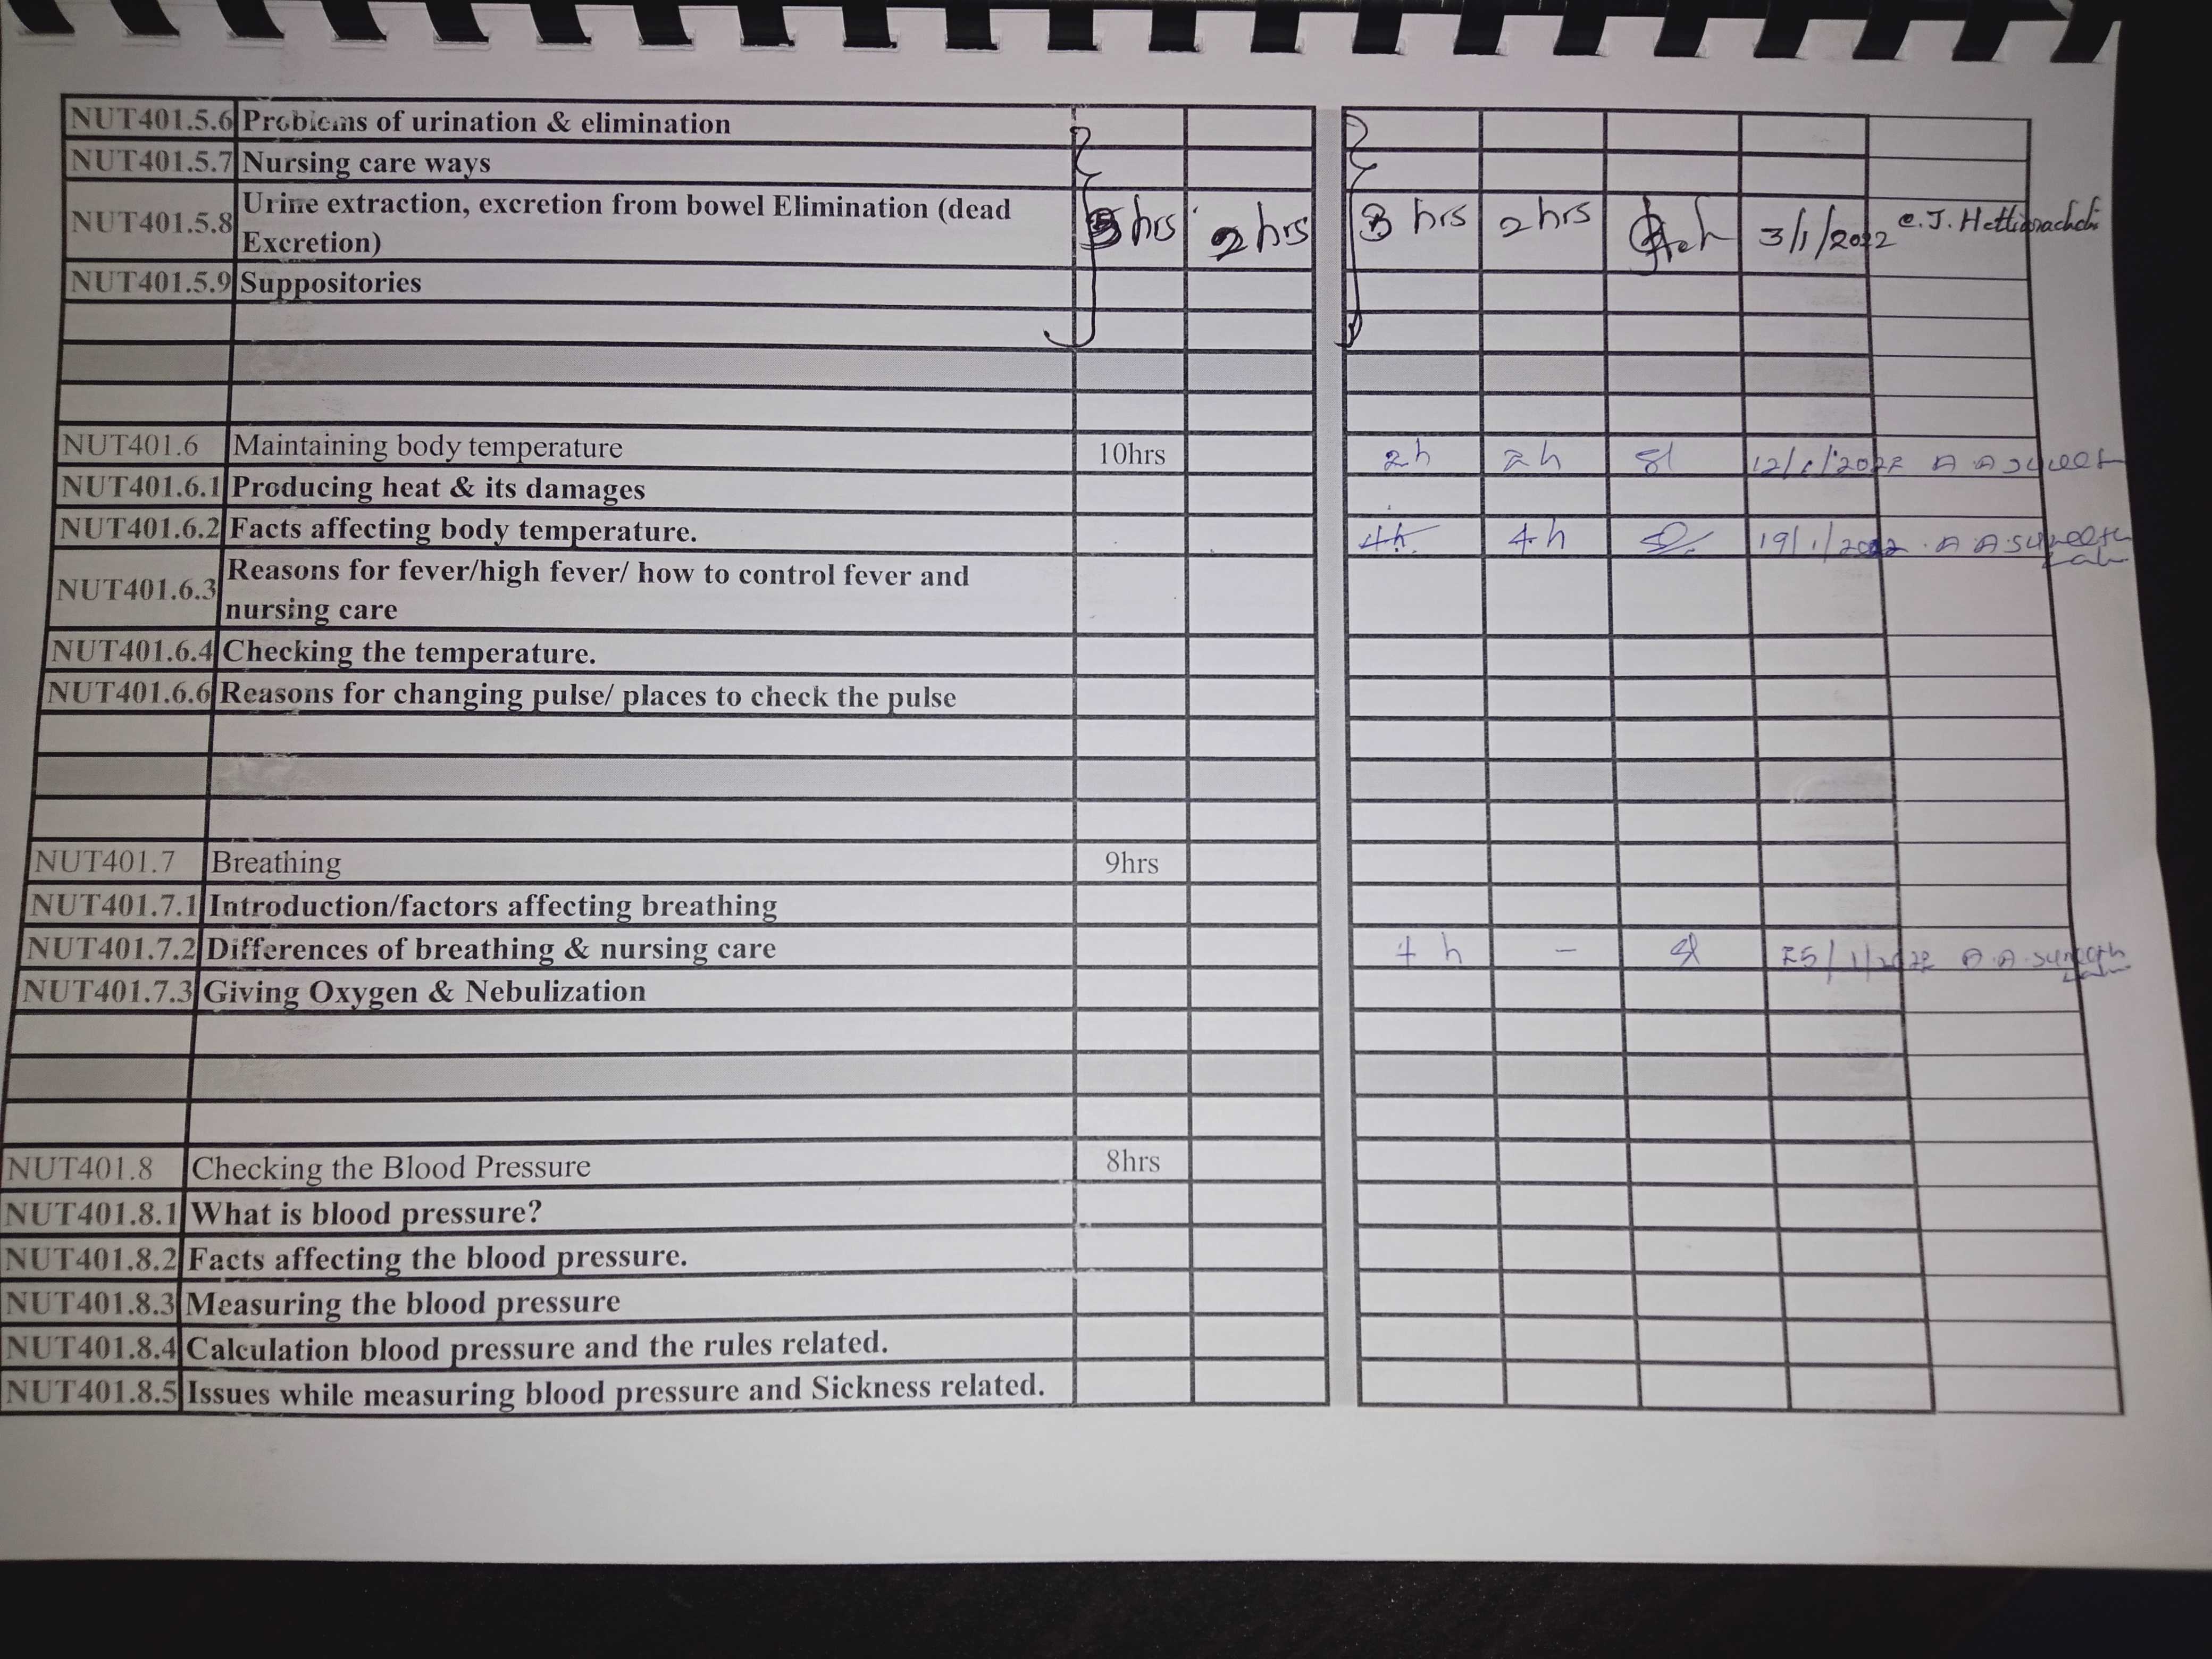 NUT401.5.6 Problems of urination & elimination
NUT401.5.7 Nursing care ways
NUT401.5.8 Urine extraction, excretion from bowel Elimination (dead
Excretion) hrs 2 hrs 3 hrs 2 hrs 3/1/2022 e.J. Hettiarachchi
NUT401.5.9 Suppositories
NUT401.6 Maintaining body temperature 10hrs 2h 2h 12/1/2022 A A suneeth
NUT401.6.1 Producing heat & its damages
NUT401.6.2 Facts affecting body temperature. 4h 4h 19/1/2022 A A suneeth
NUT401.6.3 Reasons for fever/high fever/ how to control fever and
nursing care
NUT401.6.4 Checking the temperature.
NUT401.6.6 Reasons for changing pulse/ places to check the pulse
NUT401.7 Breathing 9hrs
NUT401.7.1 Introduction/factors affecting breathing
NUT401.7.2 Differences of breathing & nursing care 4 h - 25/1/2022 A.A. suneeth
NUT401.7.3 Giving Oxygen & Nebulization
NUT401.8 Checking the Blood Pressure 8hrs
NUT401.8.1 What is blood pressure?
NUT401.8.2 Facts affecting the blood pressure.
NUT401.8.3 Measuring the blood pressure
NUT401.8.4 Calculation blood pressure and the rules related.
NUT401.8.5 Issues while measuring blood pressure and Sickness related.